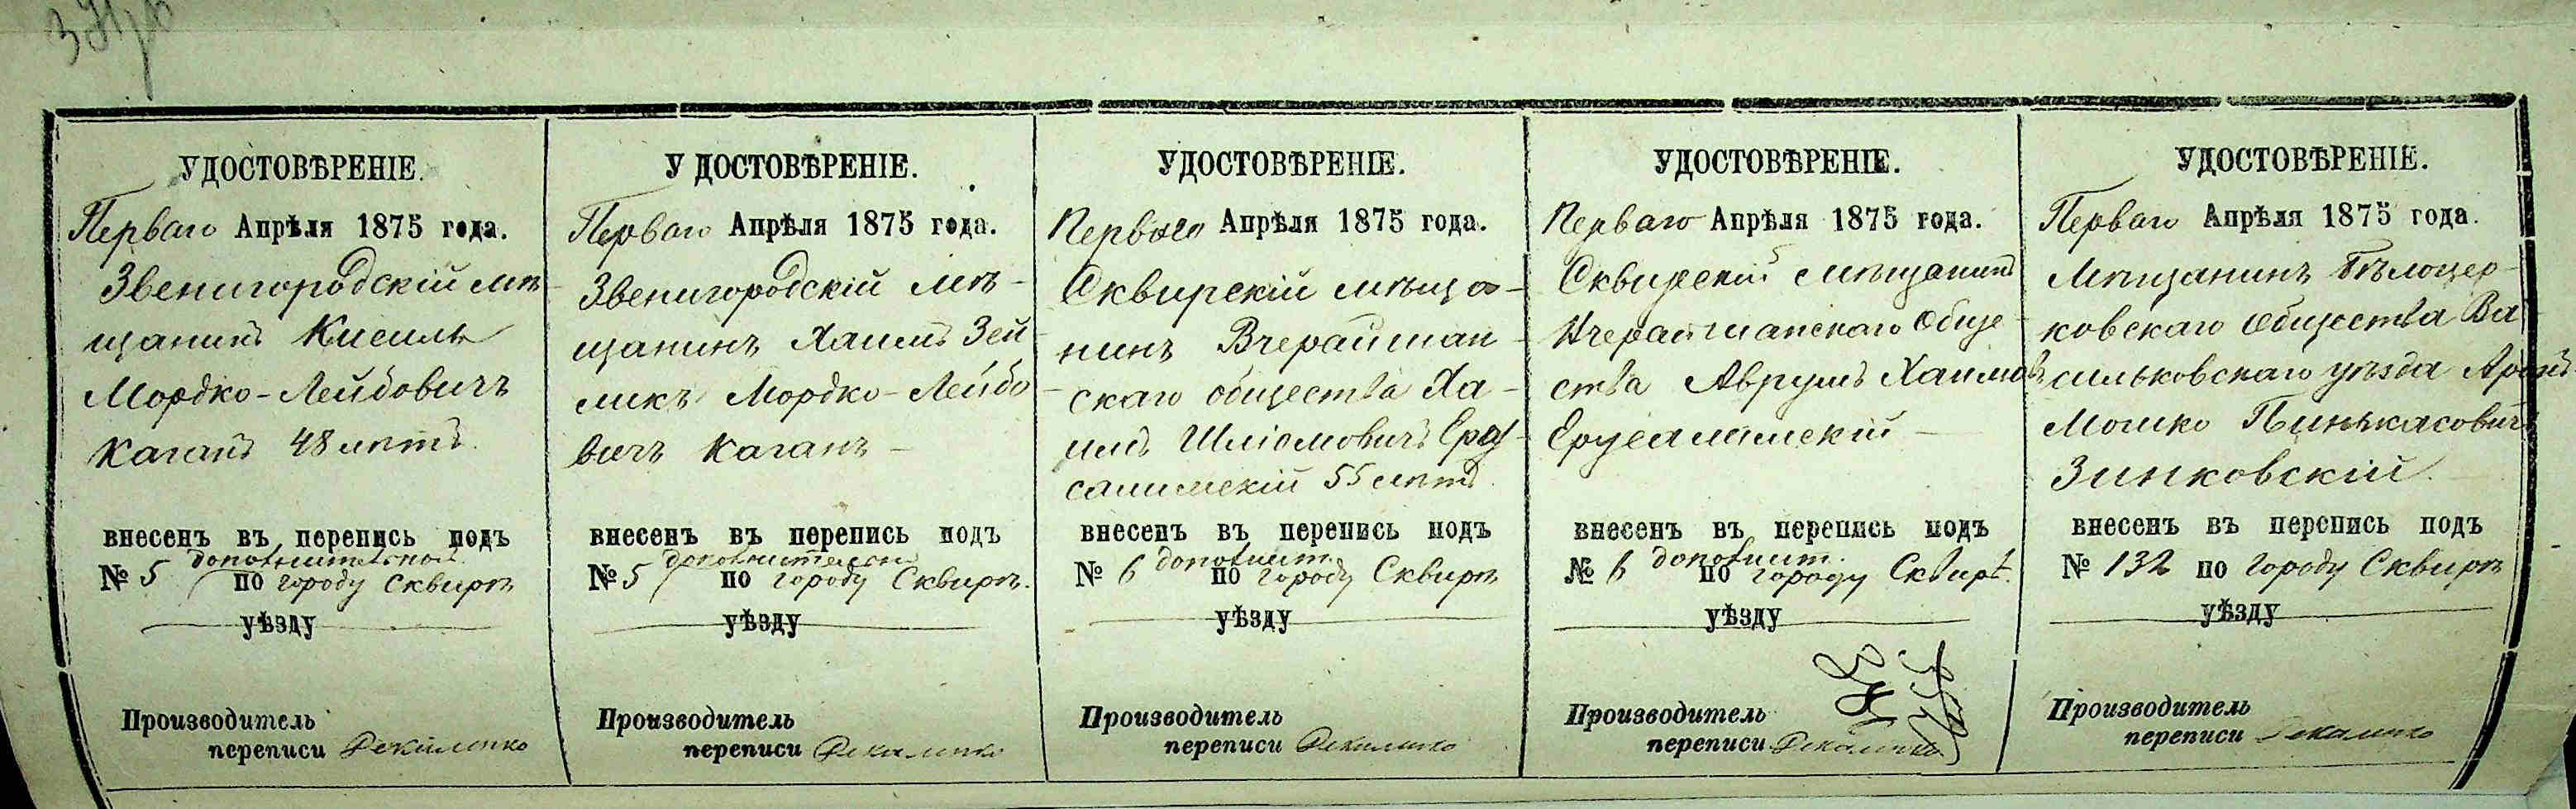 УДОСТОВѢРЕНІЕ.
Перваго Апрѣля 1875 года.
Звенигородскій мѣ-
щанинъ Кисиль
Мордко-Лейбовичъ
Каганъ 48 лѣтъ.
внесенъ въ перепись подъ
дополнительной
№ 5 по городу Сквирѣ
уѣзду
Производитель
переписи
У ДОСТОВѢРЕНІЕ.
Перваго Апрѣля 1875 года.
Звенигородскій мѣ-
щанинъ Хаимъ Зей
ликъ Мордко-Лейбо
вичъ Каганъ -
внесенъ въ перепись подъ
№ 5 по городу Сквирѣ.
уѣзду
Производитель
переписи
УДОСТОВѢРЕНІЕ.
Перваго Апрѣля 1875 года.
Сквирскій мѣща-
нинъ Вчерайшан-
скаго общества Ха-
имъ Шліомовичъ Еру-
салимскій 55 лѣтъ.
внесенъ въ перепись подъ
дополнит.
№ 6 по городу Сквирѣ
уѣзду
Производитель
переписи
УДОСТОВѢРЕНІЕ.
Перваго Апрѣля 1875 года.
Сквирскій мѣщанинъ
Вчерайшанскаго обще-
ства Аврумъ Хаимовъ
Ерусалимскій —
внесенъ въ перепись подъ
дополнит.
№ 6 по городу Сквирѣ.
уѣзду
Производитель
переписи
УДОСТОВѢРЕНІЕ.
Перваго Апрѣля 1875 года.
Мѣщанинъ Бѣлоцер-
ковскаго общества Ва
сильковскаго уѣзда Аронъ
Мошко Пинькасовичъ
Зинковскій.
внесенъ въ перепись подъ
№ 132 по городу Сквирѣ
уѣзду
Производитель
переписи